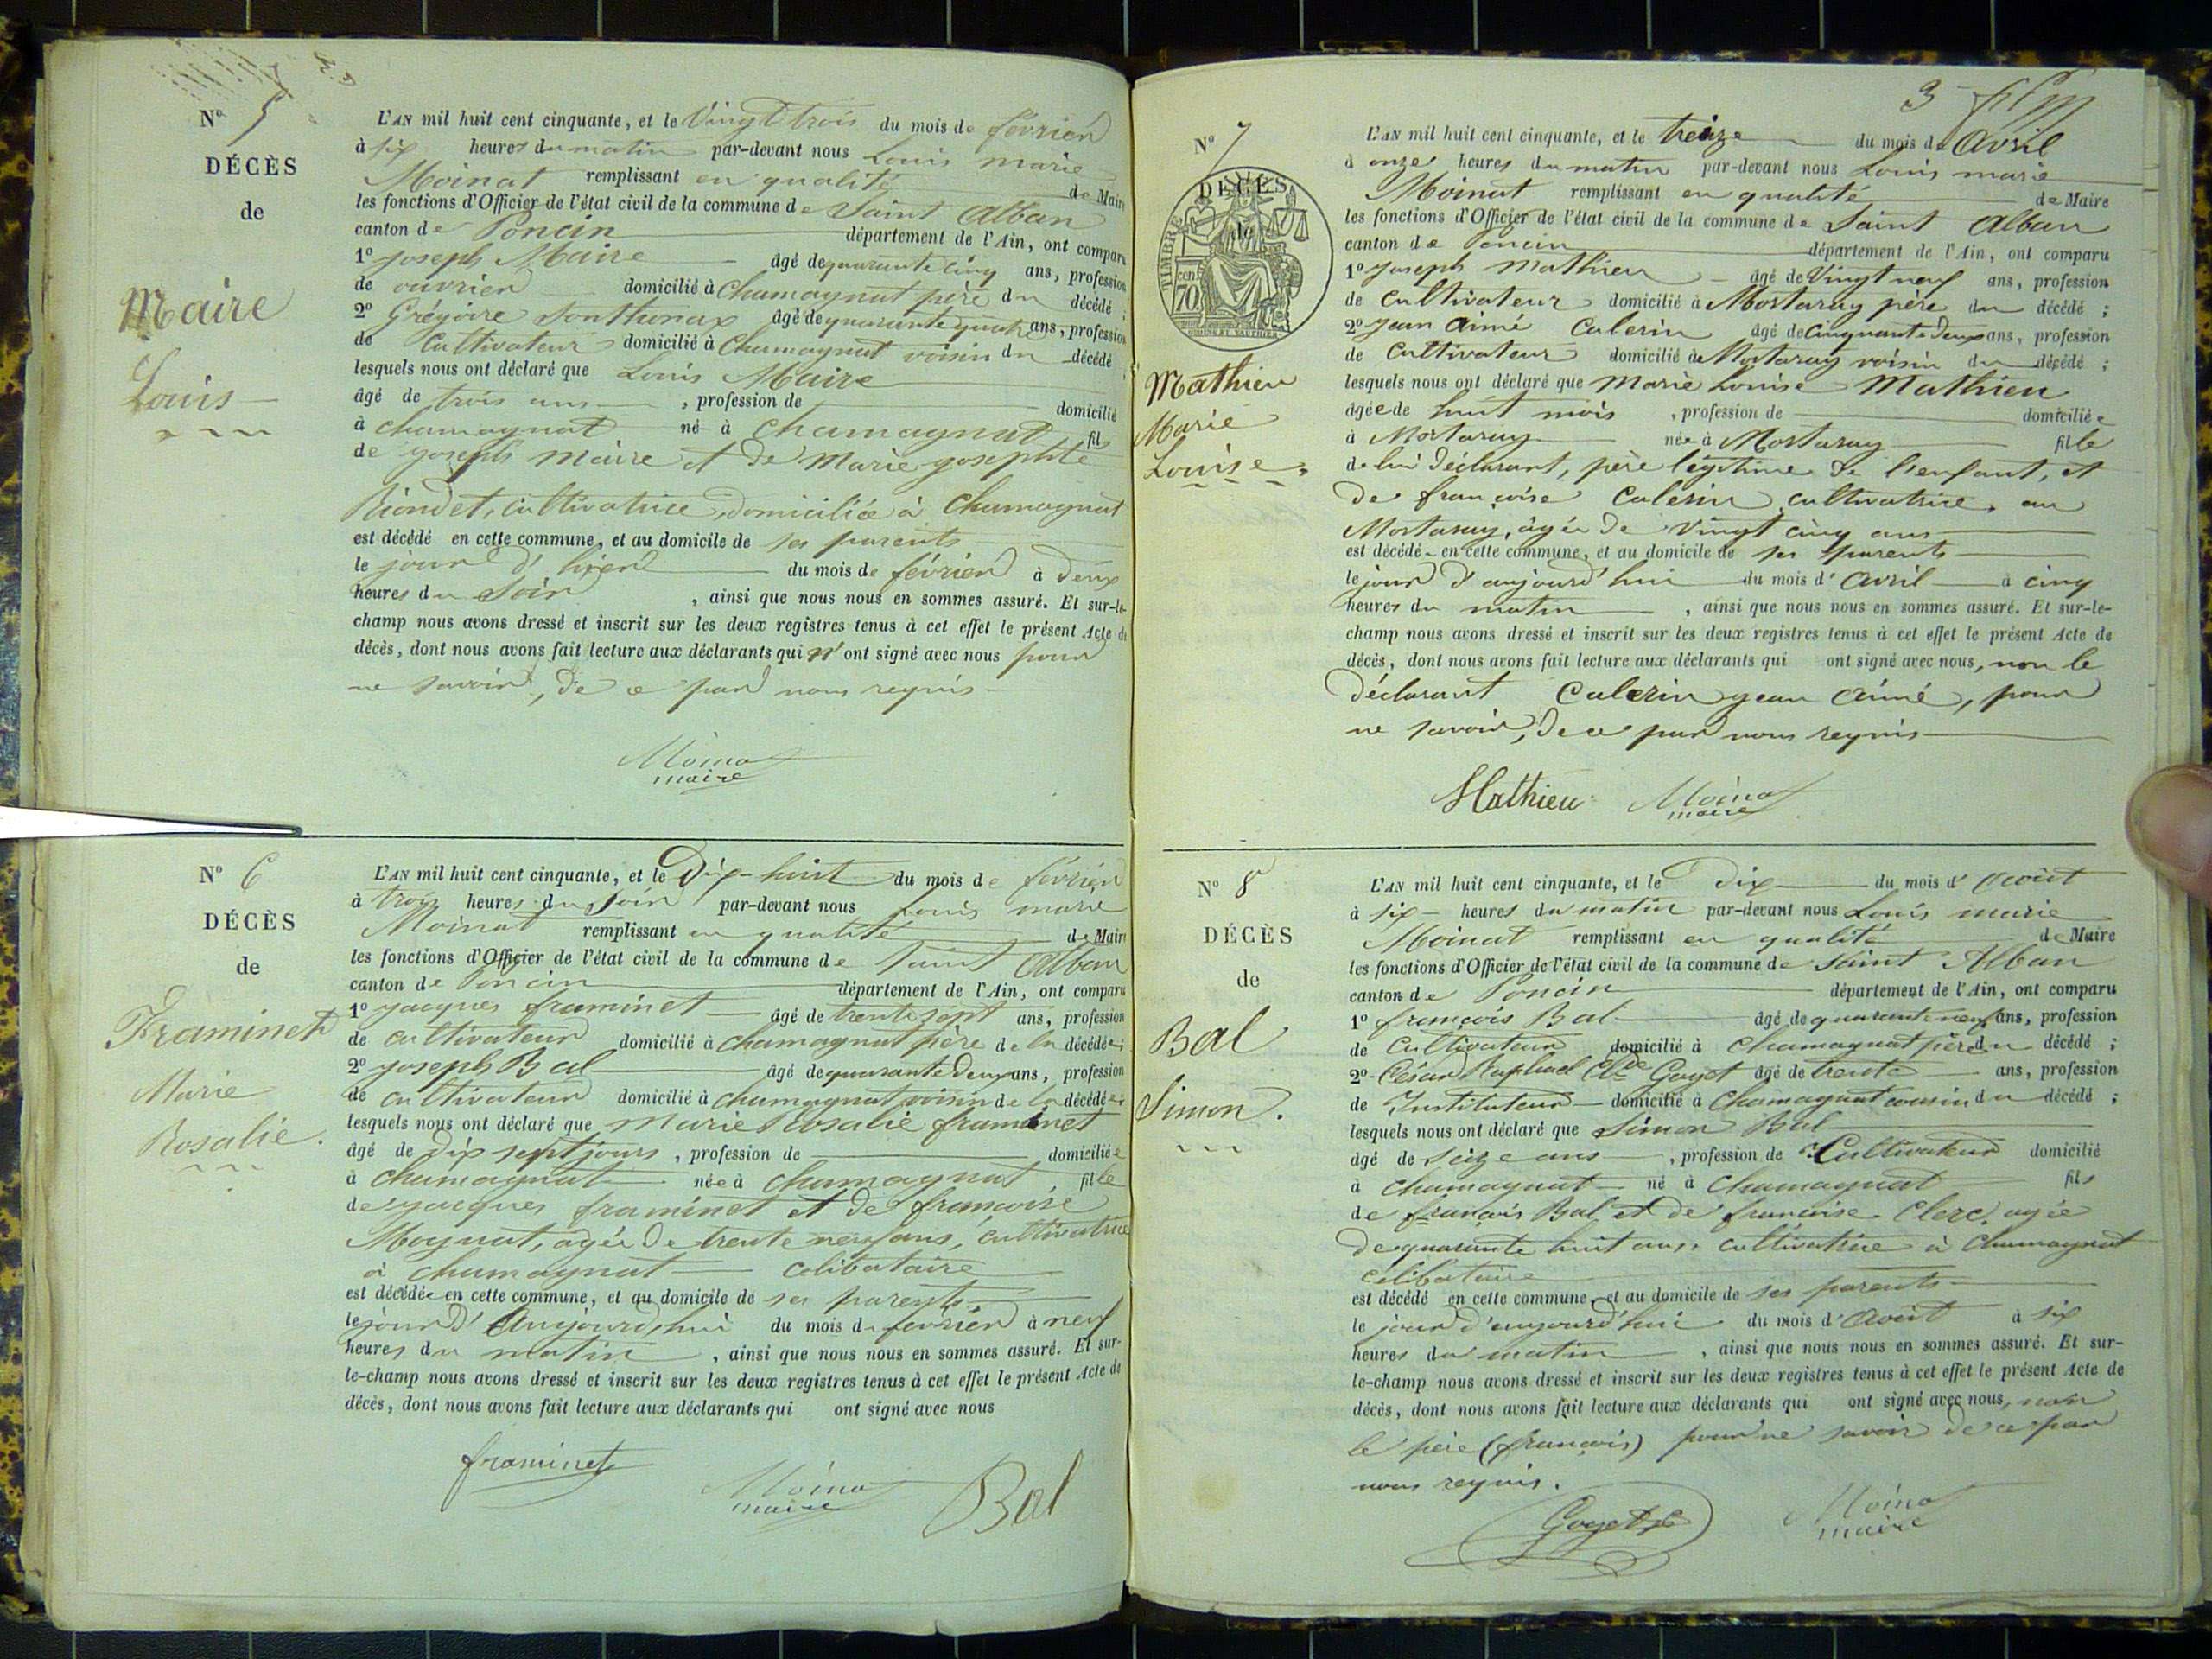 N° 5
DÉCÈS
de
Maire
Louis
L'AN mil huit cent cinquante, et le Vingt trois du mois de février
à six heures du matin par-devant nous Louis marie
Moinat remplissant en qualité de Maire
les fonctions d'Officier de l'état civil de la commune de Saint Alban
canton de Poncin département de l'Ain, ont comparu
1° joseph Maire âgé de quarante cinq ans, profession
de ouvrier domicilié à Chamagnat père du décédé ;
2° Grégoire Tonthonax âgé de quarante quatre ans, profession
de Cultivateur domicilié à Chamagnat voisin du décédé
lesquels nous ont déclaré que Louis Maire
âgé de trois ans , profession de domicilié
à chamagnat né à Chamagnat fils
de joseph Maire et de Marie josephte
Riondet, cultivatrice, domiciliée à Chamagnat
est décédé en cette commune, et au domicile de ses parents
le jour d'hier du mois de février à deux
heures du Soir , ainsi que nous nous en sommes assuré. Et sur-le-
champ nous avons dressé et inscrit sur les deux registres tenus à cet effet le présent Acte de
décès, dont nous avons fait lecture aux déclarants qui n'ont signé avec nous pour
ne savoir, de ce par nous requis
Moinat
maire
N° 6
DÉCÈS
de
Framinet
Marie
Rosalie.
L'AN mil huit cent cinquante, et le Dix-huit du mois de février
à trois heures du Soir par-devant nous Louis marie
Moinat remplissant en qualité de Maire
les fonctions d'Officier de l'état civil de la commune de Saint Alban
canton de Poncin département de l'Ain, ont comparu
1° jacques framinet âgé de trente sept ans, profession
de cultivateur domicilié à chamagnat père de la décédée ;
2° joseph Bal âgé de quarante deux ans, profession
de cultivateur domicilié à chamagnat voisin de la décédée ;
lesquels nous ont déclaré que Marie Rosalie framinet
âgé de dix sept jours , profession de domiciliée
à chamagnat née à chamagnat fille
de jacques framinet et de françoise
Moynat, agée de trente neuf ans, cultivatrice
à chamagnat celibataire
est décédée en cette commune, et au domicile de ses parents
le jour d'Aujourd'hui du mois de février à neuf
heures du matin , ainsi que nous nous en sommes assuré. Et sur-
le-champ nous avons dressé et inscrit sur les deux registres tenus à cet effet le présent Acte de
décès, dont nous avons fait lecture aux déclarants qui ont signé avec nous
framinet Moinat Bal
maire
3
N° 7
DÉCÈS
de
TIMBRE
70
Mathieu
Marie
Louise
L'AN mil huit cent cinquante, et le treize du mois d'Avril
à onze heures du matin par-devant nous Louis marie
Moinat remplissant en qualité de Maire
les fonctions d'Officier de l'état civil de la commune de Saint Alban
canton de Poncin département de l'Ain, ont comparu
1° joseph Mathieu âgé de Vingt neuf ans, profession
de Cultivateur domicilié à Mortaray père du décédé ;
2° jean Aimé Calerin âgé de Cinquante deux ans, profession
de Cultivateur domicilié à Mortaray voisin du décédé ;
lesquels nous ont déclaré que Marie Louise Mathieu
âgée de huit mois , profession de domiciliée
à Mortaray née à Mortaray fille
de lui déclarant, père légitime de l'enfant, et
de françoise Calerin cultivatrice, au
Mortaray, âgée de Vingt cinq ans
est décédé en cette commune, et au domicile de ses parents
le jour d'aujourd'hui du mois d'Avril à cinq
heures du matin , ainsi que nous nous en sommes assuré. Et sur-le-
champ nous avons dressé et inscrit sur les deux registres tenus à cet effet le présent Acte de
décès, dont nous avons fait lecture aux déclarants qui ont signé avec nous, non le
déclarant Calerin jean Aimé, pour
ne savoir, de ce par nous requis
Mathieu Moinat
maire
N° 8
DÉCÈS
de
Bal
Simon.
L'AN mil huit cent cinquante, et le Dix du mois d'Août
à six heures du matin par-devant nous Louis marie
Moinat remplissant en qualité de Maire
les fonctions d'Officier de l'état civil de la commune de Saint Alban
canton de Poncin département de l'Ain, ont comparu
1° françois Bal âgé de quarante neuf ans, profession
de Cultivateur domicilié à Chamagnat père du décédé ;
2° César Raphael Cl^de Goyet âgé de trente ans, profession
de Instituteur domicilié à Chamagnat cousin du décédé ;
lesquels nous ont déclaré que Simon Bal
âgé de seize ans , profession de Cultivateur domicilié
à Chamagnat né à Chamagnat fils
de françois Bal et de françoise Clerc, agée
de quarante huit ans, cultivatrice à Chamagnat
célibataire
est décédé en cette commune, et au domicile de ses parents
le jour d'aujourd'hui du mois d'Août à six
heures du matin , ainsi que nous nous en sommes assuré. Et sur-
le-champ nous avons dressé et inscrit sur les deux registres tenus à cet effet le présent Acte de
décès, dont nous avons fait lecture aux déclarants qui ont signé avec nous, non
le père (françois) pour ne savoir de ce par
nous requis.
Goyet Moinat
maire